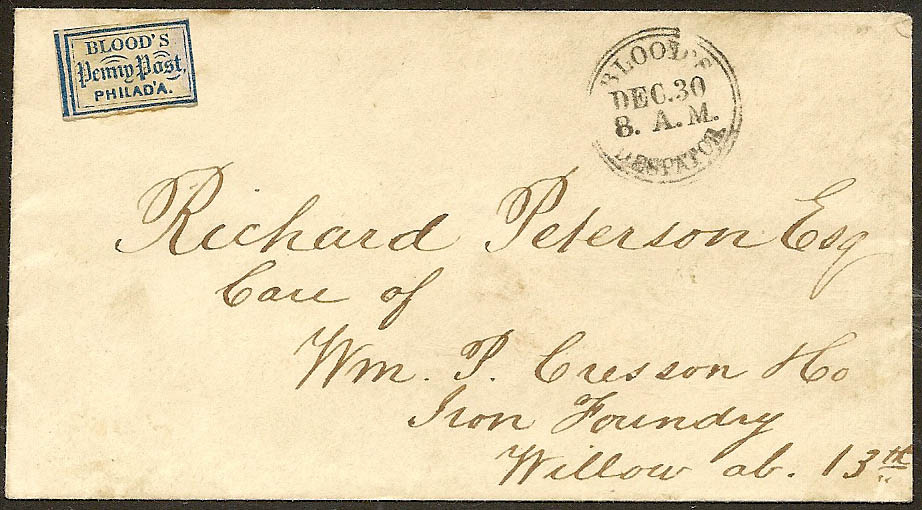 BLOOD'S
Penny Post,
PHILAD'A.
BLOOD'S
DEC. 30
8. A.M.
DESPATCH
Richard Peterson Esq
Care of
Wm. P. Cresson &Co
Iron Foundry
Willow ab. 13th